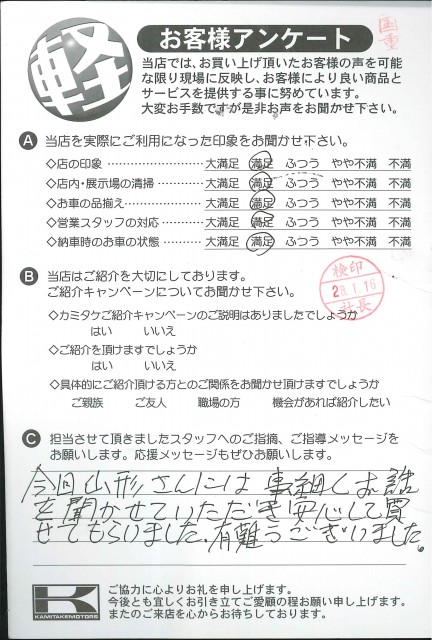 軽
お客様アンケート
国重
当店では、お買い上げ頂いたお客様の声を可能
な限り現場に反映し、お客様により良い商品と
サービスを提供する事に努めています。
大変お手数ですが是非お声をお聞かせ下さい。
A 当店を実際にご利用になった印象をお聞かせ下さい。
◇店の印象 大満足 満足 ふつう やや不満 不満
◇店内・展示場の清掃 大満足 満足 ふつう やや不満 不満
◇お車の品揃え 大満足 満足 ふつう やや不満 不満
◇営業スタッフの対応 大満足 満足 ふつう やや不満 不満
◇納車時のお車の状態 大満足 満足 ふつう やや不満 不満
B 当店はご紹介を大切にしてあります。
ご紹介キャンペーンについてお聞かせ下さい。
検印
28.1.16
社長
◇カミタケご紹介キャンペーンのご説明はありましたでしょうか
はい いいえ
◇ご紹介を頂けますでしょうか
はい いいえ
◇具体的にご紹介頂ける方とのご関係をお聞かせ頂けますでしょうか
ご親族 ご友人 職場の方 機会があれば紹介したい
C 担当させて頂きましたスタッフへのご指摘、ご指導メッセージを
お願いします。応援メッセージもぜひお願いします。
今回山形さんには事細しお話
を聞かせていただき安心して買
せてもらいました。有難うございました。
KAMITAKEMOTORS
ご協力に心よりお礼を申し上げます。
今後とも宜しくお引き立てご愛顧の程お願い申し上げます。
またのご来店を心からお待ちしております。